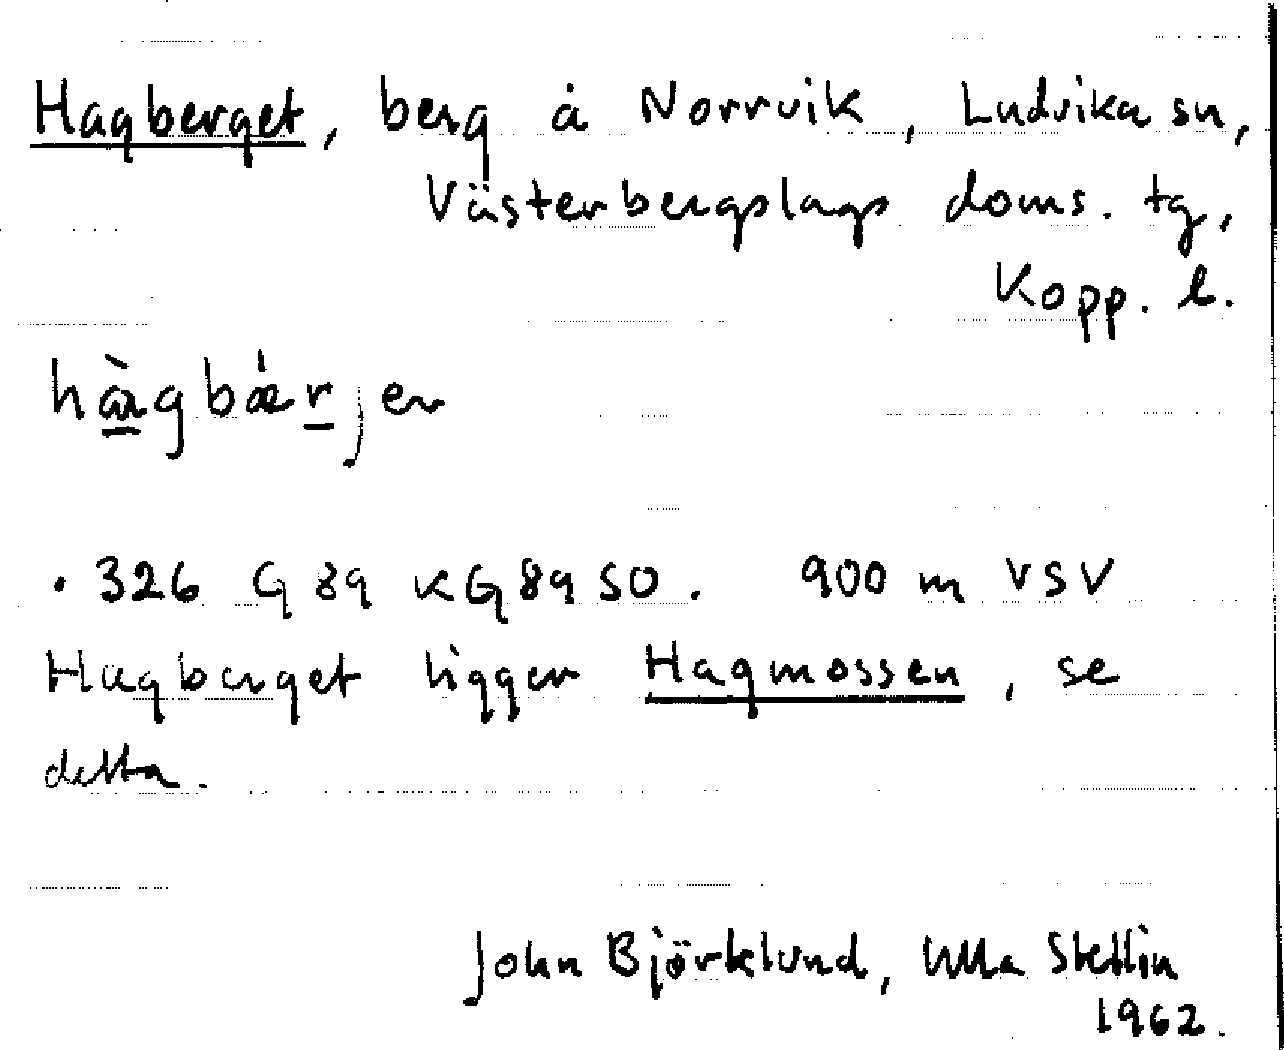 Hagberget, berg å Norrvik, Ludvika sn,
Västerbergslags doms. tg,
Kopp. l.
hàgbǽrjer
• 326 G 89 KG 89 SO. 900 m VSV
Hagberget ligger Hagmossen, se
detta.
John Björklund, Ulla Stettin
1962.